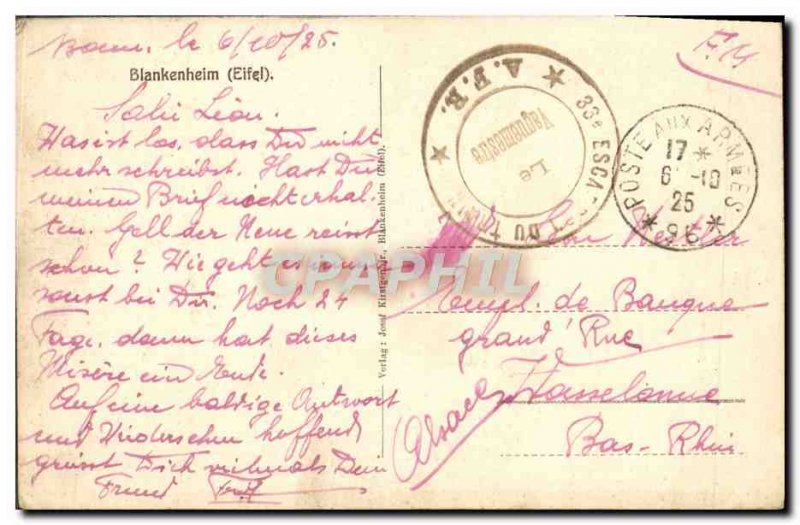 Bonn, le 6/10/25.
F.M
Blankenheim (Eifel).
Salü Léon.
Was ist los, dass Du nicht
mehr schreibst. Hast Du
meinen Brief nicht erhal-
ten. Gell der Neue reisst
schon? Wie geht es
sonst bei Dir. Noch 24
Tage, dann hat dieses
Misère ein Ende.
Auf eine baldige Antwort
und Wiedersehen hoffend
grüsst Dich vielmals Dein
Freund
Verlag: Josef Kirstgen jr., Blankenheim (Eifel).
33e ESCA DU TRAIN
★ A.F.R. ★
Le
Vaguemestre
POSTE AUX ARMÉES
17 *
6 -10
25
* 96 *
Léon
Empl. de Banque
grand'Rue
Wasselonne
Bas-Rhin
(Alsace)
CPAPHIL